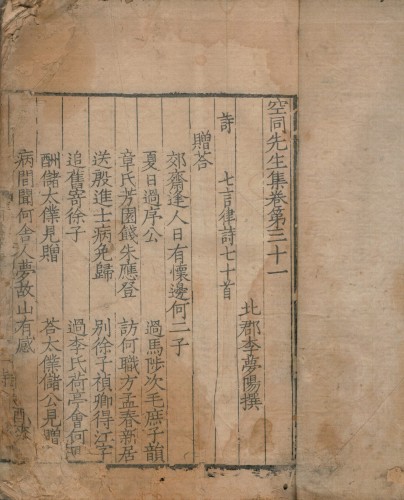 空同先生集卷第三十一
北郡李夢陽撰
詩 七言律詩七十首
贈荅
郊齋逢人日有懷邊何二子
夏日過序公 過馬陟次毛庶子韻
章氏芳園餞朱應登 訪何職方孟春新居
送殷進士病免歸 別徐子禎卿得江字
追舊寄徐子 過李氏荷亭會何
酬儲太僕見贈 荅太僕儲公見贈
病間聞何舍人夢故山有感